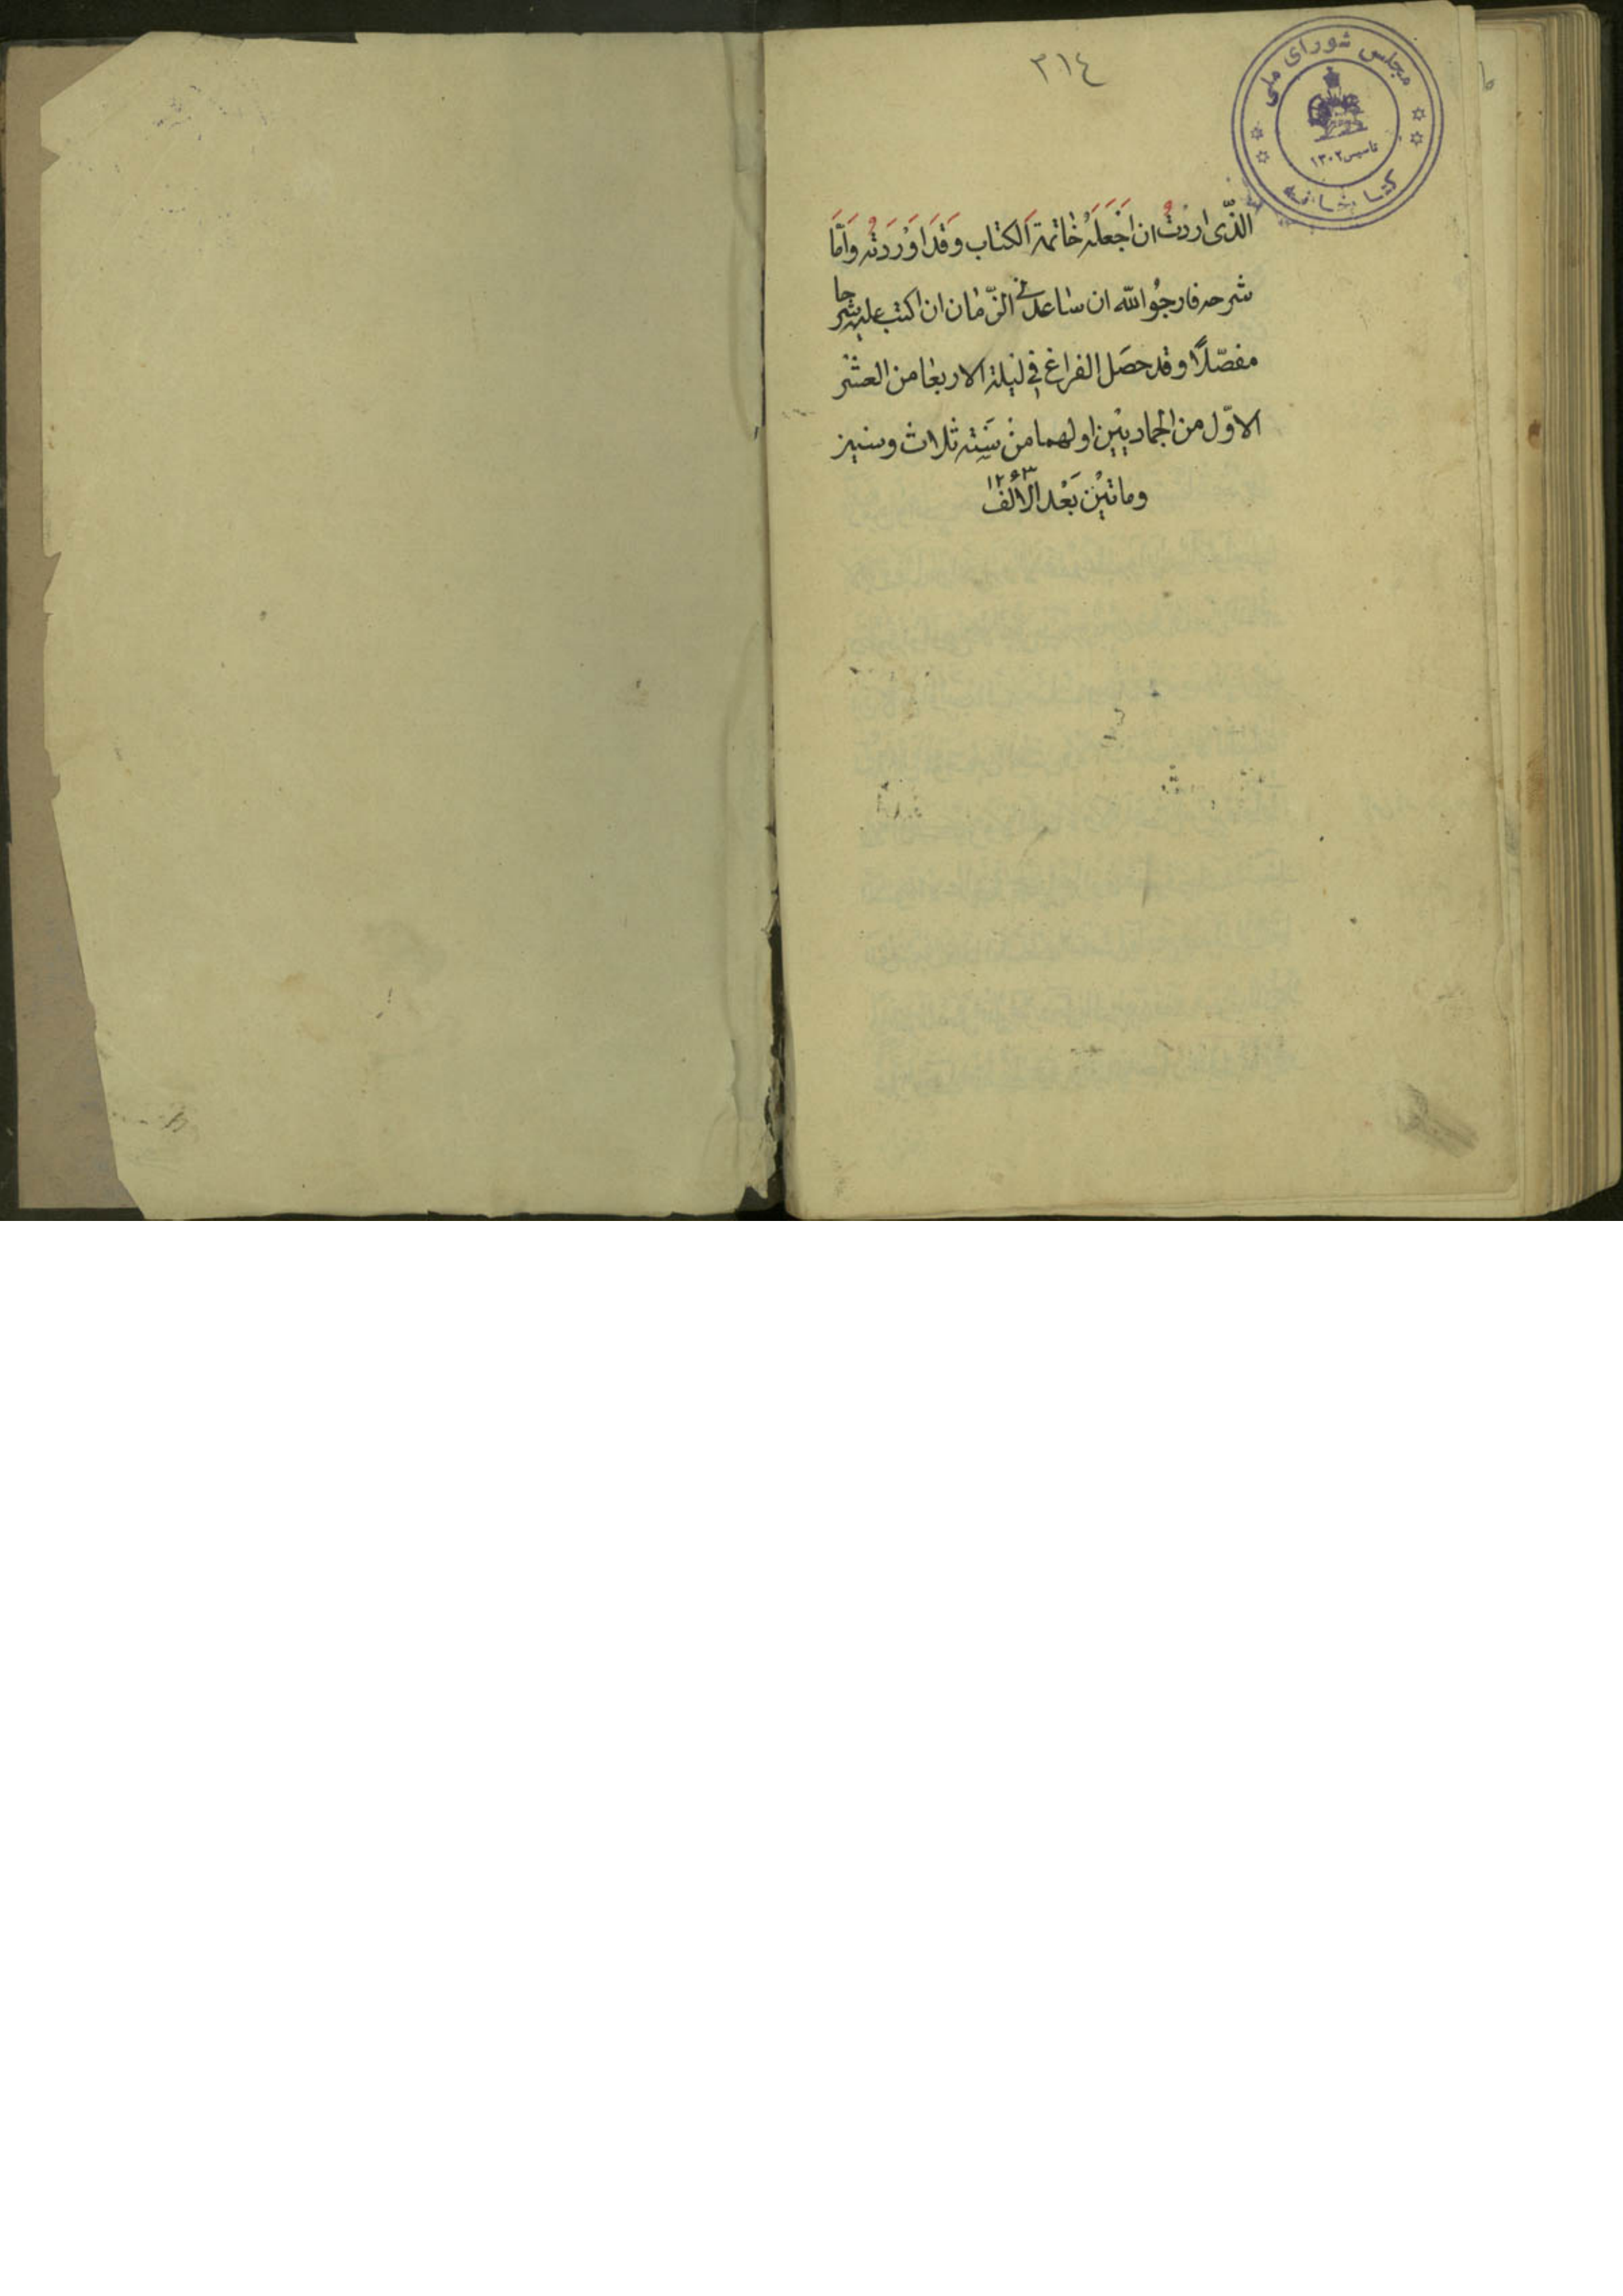 ٣١٤
مجلس شورای ملی
تاسیس ١٣٠٢
کتابخانه
الذّی اردْتُ ان اَجْعَلَهُ خاتمة الکتاب وَقَد اَوْرَدَتُه وَاَمّا
شرحه فارجُو اللّه ان ساعدنی الزّمان ان اکتب علیه شرحا
مفصّلاً و قد حصَل الفراغ فی لیلة الاربعا من العشر
الاوّل من الجمادیَیْن اولهما منْ سَنَته ثلاث وستین
وماتیْن بَعْد الاَلف ١٢٦٣